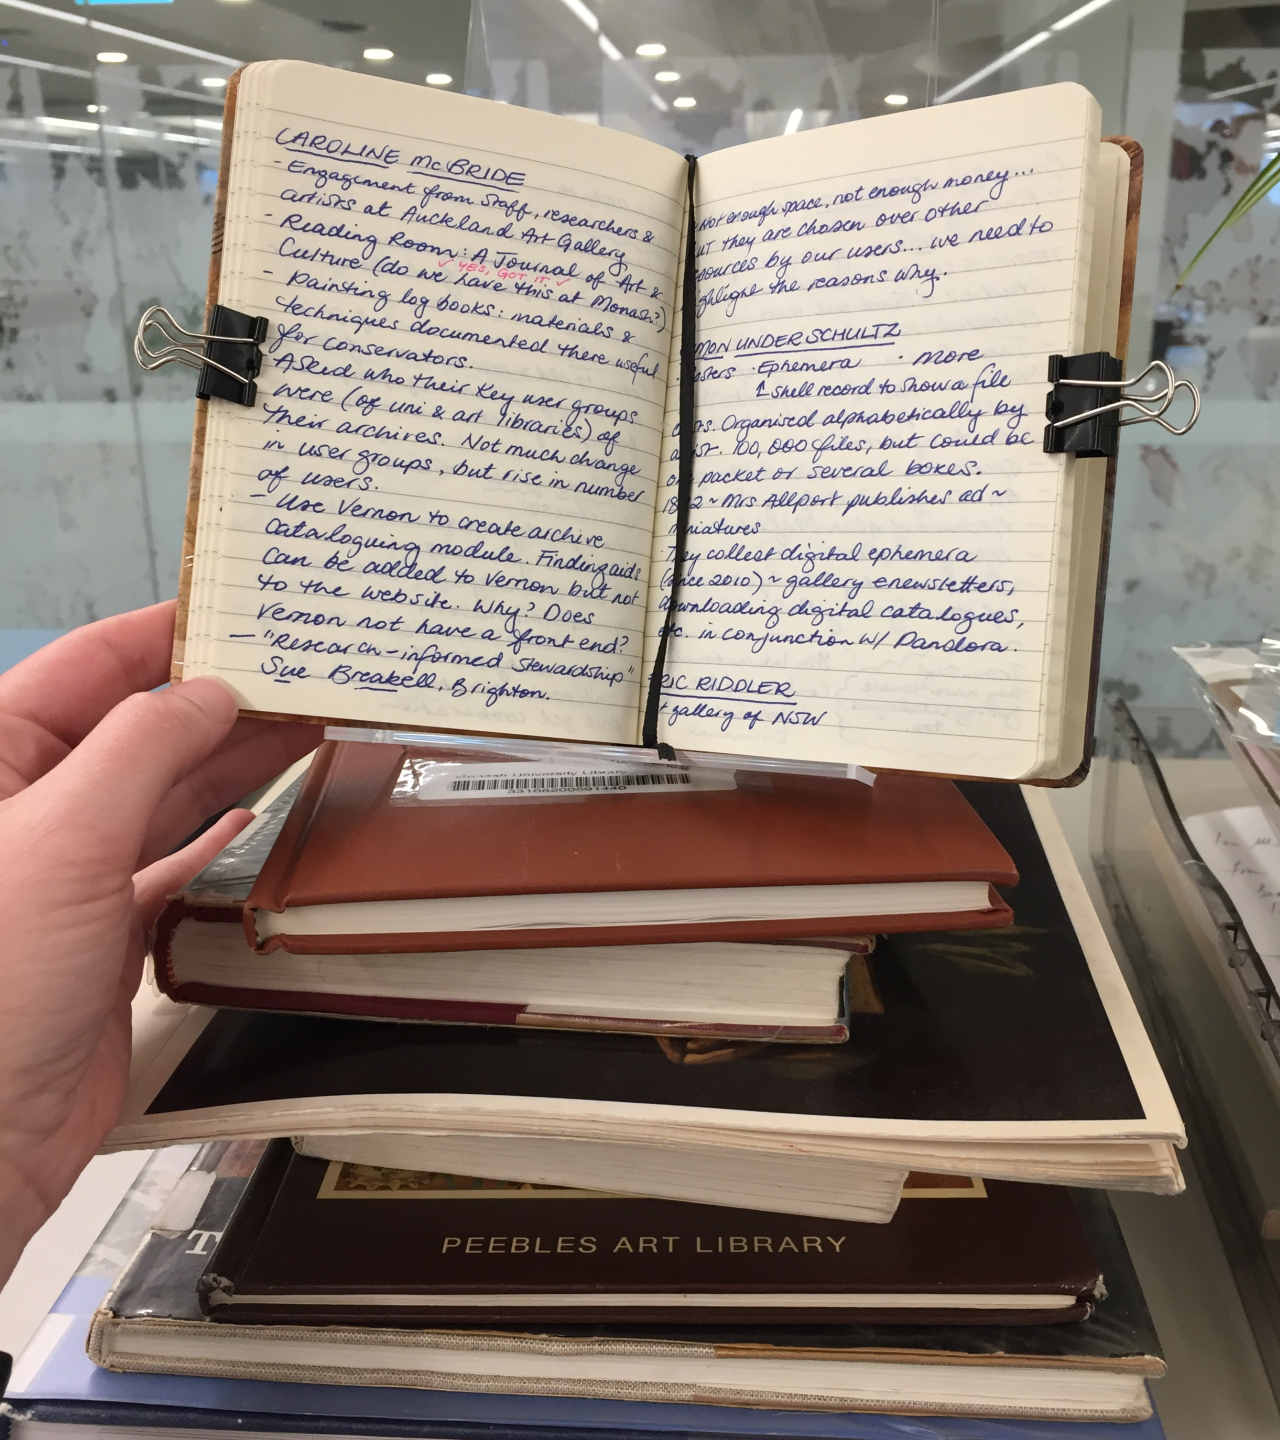 CAROLINE McBRIDE
- Engagement from staff, researchers &
artists at Auckland Art Gallery
- Reading Room: A Journal of Art &
Culture (do we have this at Monash?)
✓ YES, GOT IT ✓
- Painting log books: materials &
techniques documented there useful
for conservators.
Asked who their key user groups
were (of uni & art libraries) of
their archives. Not much change
in user groups, but rise in number
of users.
- Use Vernon to create archive
cataloguing module. Finding aids
can be added to Vernon but not
to the website. Why? Does
Vernon not have a front end?
— "Research-informed stewardship"
Sue Breakell, Brighton.
Not enough space, not enough money...
they are chosen over other
by our users... we need to
the reasons why.
UNDERSCHULTZ
· Ephemera · more
↑ shell record to show a file
Organised alphabetically by
100,000 files, but could be
packet or several boxes.
~ Mrs Allport publishes ad ~
collect digital ephemera
2010) ~ gallery enewsletters,
downloading digital catalogues,
in conjunction w/ Pandora.
RIDDLER
gallery of NSW
Monash University Library
PEEBLES ART LIBRARY
T